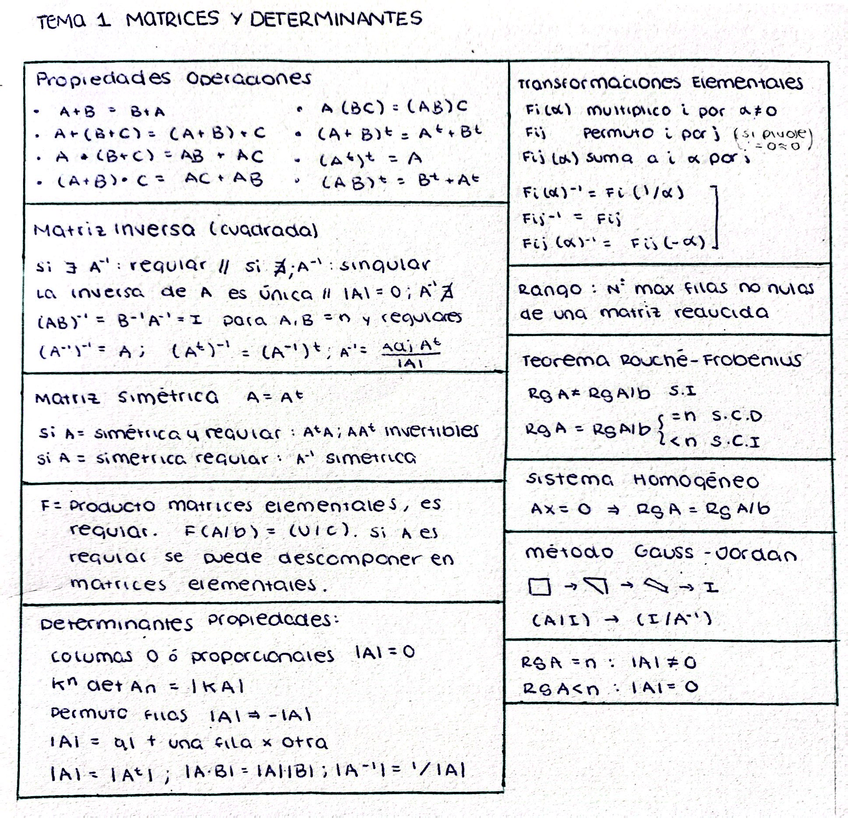 TEMA 1 MATRICES Y DETERMINANTES
Propiedades Operaciones
• A+B = B+A
• A+(B+C) = (A+B)+C
• A•(B+C) = AB + AC
• (A+B)•C = AC+AB
• A(BC) = (AB)C
• (A+B)ᵗ = Aᵗ+Bᵗ
• (Aᵗ)ᵗ = A
• (AB)ᵗ = Bᵗ+Aᵗ
Matriz inversa (cuadrada)
Si ∃ A⁻¹: regular // si ∄; A⁻¹: singular
La inversa de A es única // |A|=0; A⁻¹ ∄
(AB)⁻¹ = B⁻¹A⁻¹ = I para A,B = n y regulares
(A⁻¹)⁻¹ = A; (Aᵗ)⁻¹ = (A⁻¹)ᵗ; A⁻¹ = Adj Aᵗ / |A|
Matriz simétrica A = Aᵗ
Si A = simétrica y regular: AᵗA; AAᵗ invertibles
Si A = simetrica regular: A⁻¹ simetrica
F = Producto matrices elementales, es
regular. F(A/b) = (U/C). Si A es
regular se puede descomponer en
matrices elementales.
Determinantes propiedades:
columas 0 ó proporcionales |A|=0
Kⁿ det An = |KA|
Permuto filas |A| ⇒ -|A|
|A| = al + una fila x otra
|A| = |Aᵗ|; |A·B| = |A||B|; |A⁻¹| = 1/|A|
Transformaciones Elementales
Fi(α) multiplico i por α≠0
Fij permuto i por j (si pivote = 0)
Fij(α) suma a i α por j
Fi(α)⁻¹ = Fi(1/α)
Fij⁻¹ = Fij
Fij(α)⁻¹ = Fij(-α)
Rango: Nº max filas no nulas
de una matriz reducida
Teorema Rouché-Frobenius
Rg A ≠ Rg A/b S.I
Rg A = Rg A/b { =n S.C.D
<n S.C.I
Sistema Homogéneo
Ax = 0 ⇒ Rg A = Rg A/b
método Gauss-Jordan
→ → → I
(A|I) → (I/A⁻¹)
Rg A = n : |A| ≠ 0
Rg A<n : |A| = 0